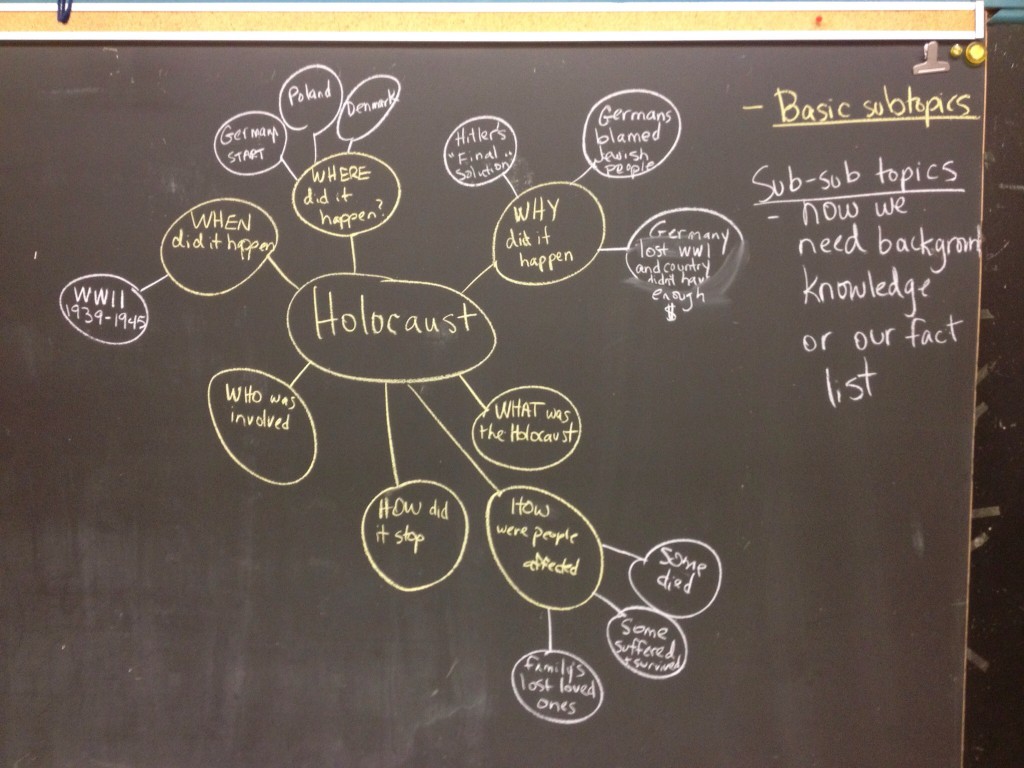 Poland
Denmark
Germany
START
WHERE
did it
happen?
Hitler's
"Final
Solution"
Germans
blamed
Jewish
people
- Basic subtopics
Sub-sub topics
- now we
need background
knowledge
or our fact
list
WHEN
did it happen
WHY
did it
happen
Germany
lost WW1
and country
didn't have
enough
$
WWII
1939-1945
Holocaust
WHO was
involved
WHAT was
the Holocaust
HOW did
it stop
HOW
were people
affected
Some
died
Some
suffered
& survived
Family's
lost loved
ones